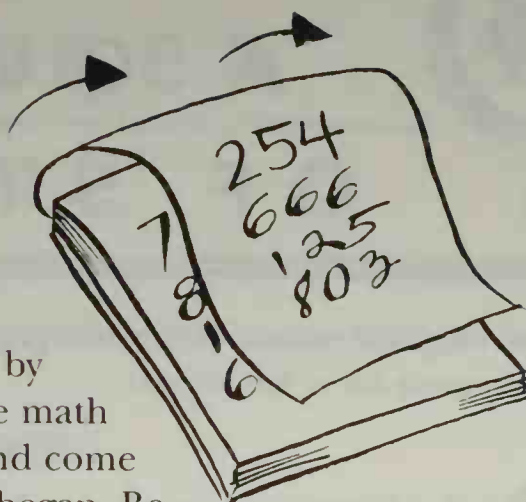 254
666
125
803
7
8
1
6
by
e math
nd come
began. Be